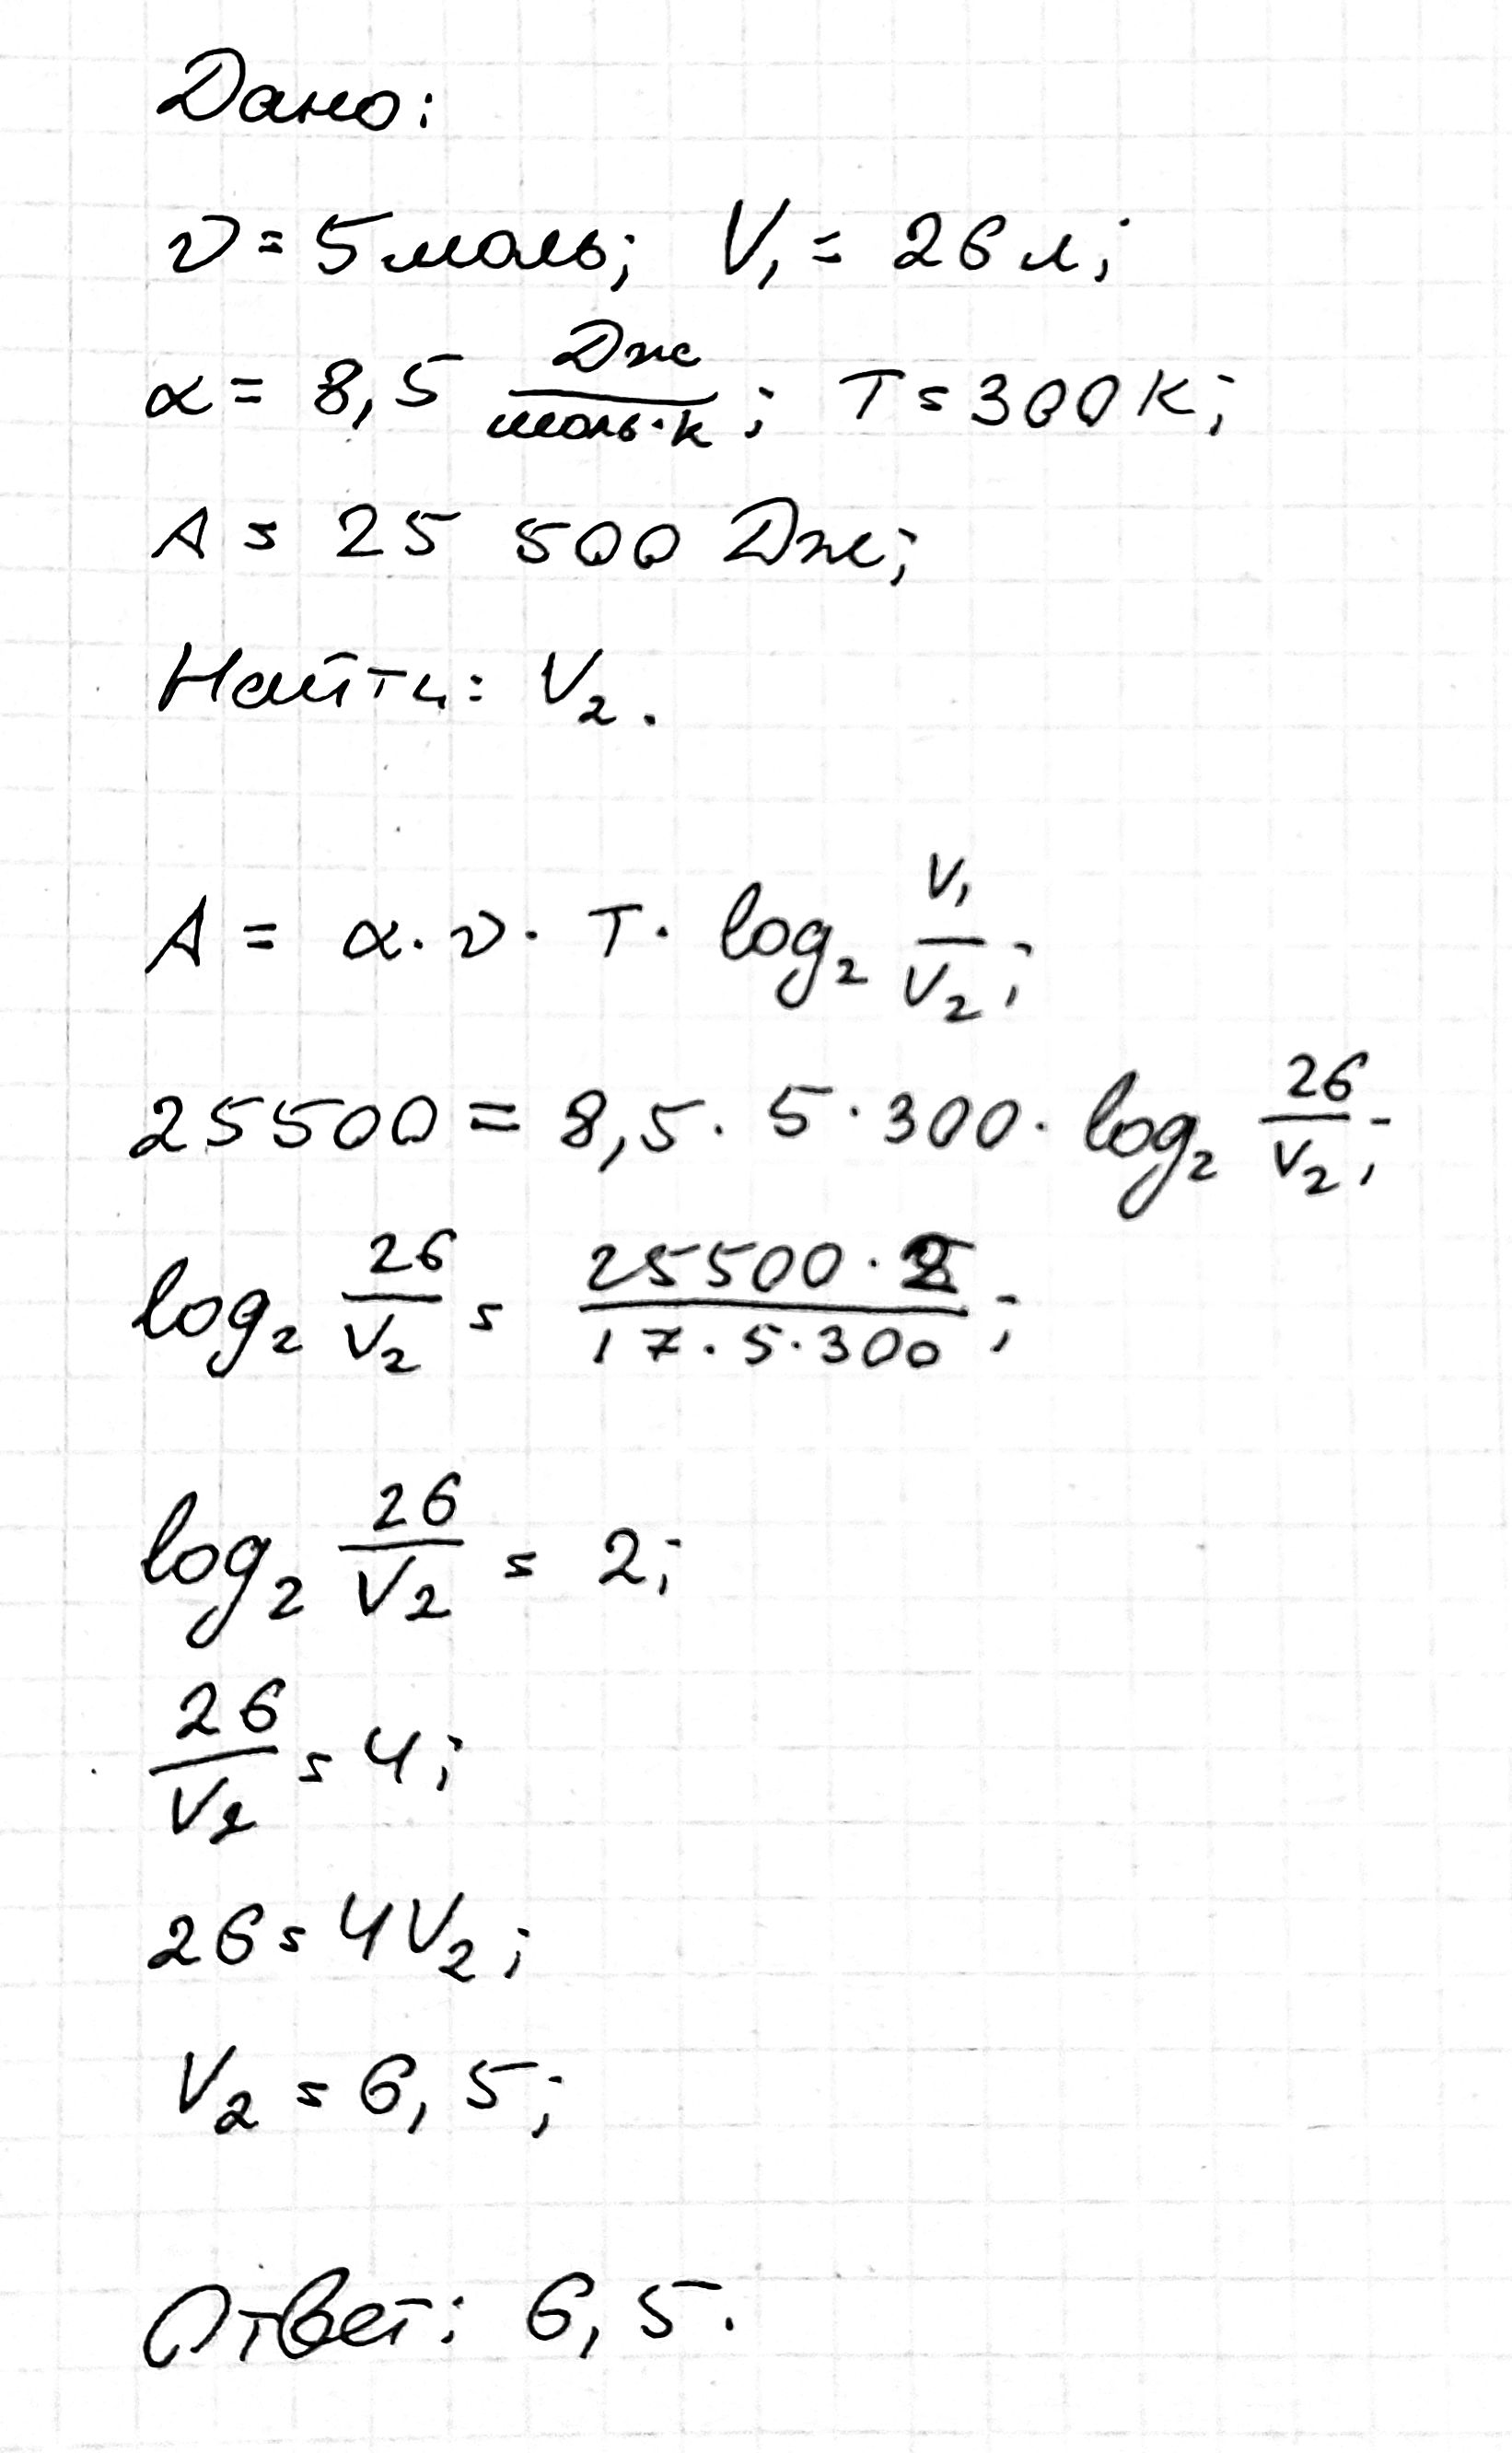 Дано:
ν = 5 моль; V₁ = 26 л;
α = 8,5 Дж/(моль·К); T = 300 К;
A = 25 500 Дж;
Найти: V₂.
A = α · ν · T · log₂ V₁/V₂;
25500 = 8,5 · 5 · 300 · log₂ 26/V₂;
log₂ 26/V₂ = (25500 · 2)/(17 · 5 · 300);
log₂ 26/V₂ = 2;
26/V₂ = 4;
26 = 4V₂;
V₂ = 6,5;
Ответ: 6,5.